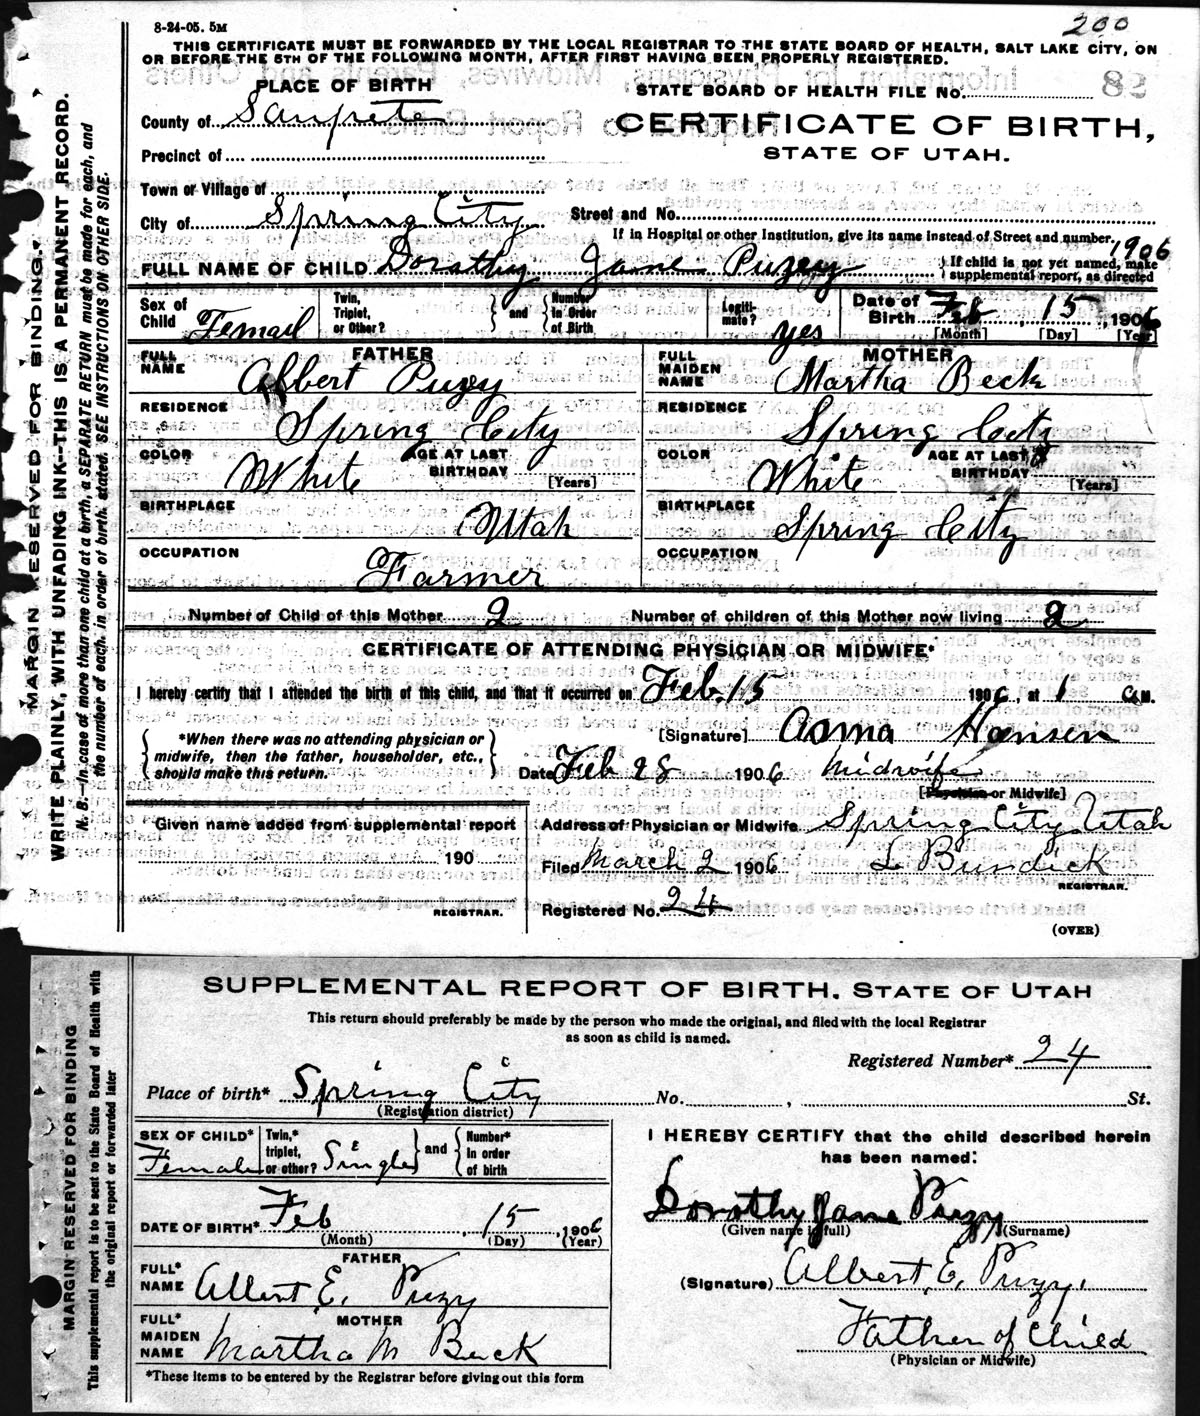 8-24-05. 5M
200
THIS CERTIFICATE MUST BE FORWARDED BY THE LOCAL REGISTRAR TO THE STATE BOARD OF HEALTH, SALT LAKE CITY, ON
OR BEFORE THE 5TH OF THE FOLLOWING MONTH, AFTER FIRST HAVING BEEN PROPERLY REGISTERED.
PLACE OF BIRTH
STATE BOARD OF HEALTH FILE No.
82
County of Sanpete
CERTIFICATE OF BIRTH,
STATE OF UTAH.
Precinct of
Town or Village of
City of Spring City Street and No.
If in Hospital or other Institution, give its name instead of Street and number.
1906
FULL NAME OF CHILD Dorathy Jane Puzey } If child is not yet named, make
supplemental report, as directed
Sex of Child Femail Twin, Triplet, or Other? } and { Number In Order of Birth Legiti-mate? yes Date of Birth Feb 15, 1906
[Month] [Day] [Year]
FATHER MOTHER
FULL NAME Albert Puzey FULL MAIDEN NAME Martha Beck
RESIDENCE Spring City RESIDENCE Spring City
COLOR White AGE AT LAST BIRTHDAY [Years] COLOR White AGE AT LAST BIRTHDAY [Years]
BIRTHPLACE Utah BIRTHPLACE Spring City
OCCUPATION Farmer OCCUPATION
Number of Child of this Mother 2 Number of children of this Mother now living 2
CERTIFICATE OF ATTENDING PHYSICIAN OR MIDWIFE*
I hereby certify that I attended the birth of this child, and that it occurred on Feb. 15 1906, at 1 a M.
[Signature] Asma Hansen
{ *When there was no attending physician or
midwife, then the father, householder, etc.,
should make this return. }
Date Feb 28 1906 Midwife
[Physician or Midwife]
Given name added from supplemental report
190
REGISTRAR.
Address of Physician or Midwife Spring City Utah
Filed March 2 1906 L Burdick
REGISTRAR.
Registered No. 24
(OVER)
MARGIN RESERVED FOR BINDING.
WRITE PLAINLY, WITH UNFADING INK—THIS IS A PERMANENT RECORD.
N. B.—In case of more than one child at a birth, a SEPARATE RETURN must be made for each, and
the number of each, in order of birth, stated. SEE INSTRUCTIONS ON OTHER SIDE.
SUPPLEMENTAL REPORT OF BIRTH. STATE OF UTAH
This return should preferably be made by the person who made the original, and filed with the local Registrar
as soon as child is named.
Registered Number* 24
Place of birth* Spring City No. , St.
(Registration district)
SEX OF CHILD* Female Twin,* triplet, or other? Single } and { Number* In order of birth
DATE OF BIRTH* Feb 15, 1906
(Month) (Day) (Year)
FATHER
FULL* NAME Albert E. Puzy
MOTHER
FULL* MAIDEN NAME Martha M Beck
*These items to be entered by the Registrar before giving out this form
I HEREBY CERTIFY that the child described herein
has been named:
Dorothy Jane Puzy
(Given name in full) (Surname)
(Signature) Albert E. Puzy.
Father of Child
(Physician or Midwife)
MARGIN RESERVED FOR BINDING
This supplemental report is to be sent to the State Board of Health with
the original report or forwarded later